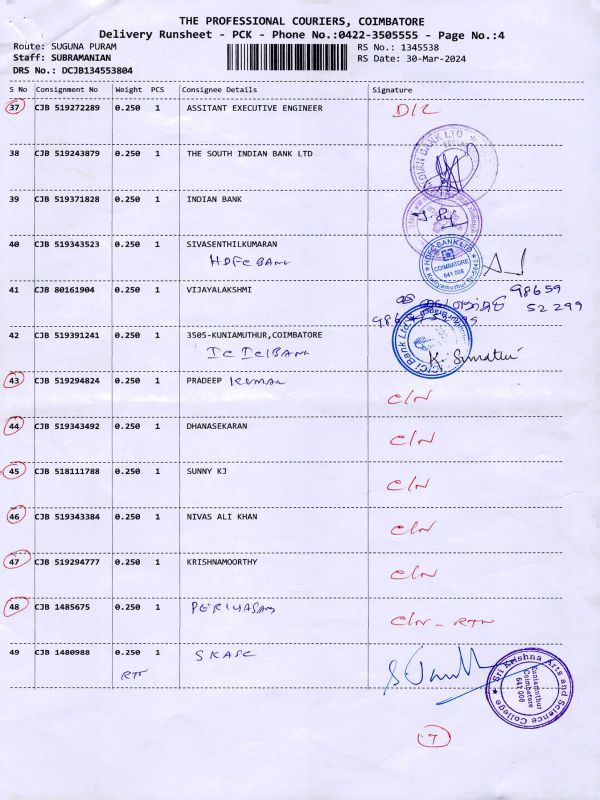 THE PROFESSIONAL COURIERS, COIMBATORE
Delivery Runsheet - PCK - Phone No.:0422-3505555 - Page No.:4
Route: SUGUNA PURAM
RS No.: 1345538
Staff: SUBRAMANIAN
RS Date: 30-Mar-2024
DRS No.: DCJB134553804
S No Consignment No Weight PCS Consignee Details Signature
37 CJB 519272289 0.250 1 ASSITANT EXECUTIVE ENGINEER D/L
38 CJB 519243879 0.250 1 THE SOUTH INDIAN BANK LTD
39 CJB 519371828 0.250 1 INDIAN BANK
40 CJB 519343523 0.250 1 SIVASENTHILKUMARAN
HDFC BANK
HDFC BANK LTD
COIMBATORE
641 008
41 CJB 80161904 0.250 1 VIJAYALAKSHMI
98659
52 299
42 CJB 519391241 0.250 1 3505-KUNIAMUTHUR,COIMBATORE
IC ICI BANK
ICICI Bank Ltd.
K. Sumathi
43 CJB 519294824 0.250 1 PRADEEP KUMAR C/N
44 CJB 519343492 0.250 1 DHANASEKARAN C/N
45 CJB 518111788 0.250 1 SUNNY KJ C/N
46 CJB 519343384 0.250 1 NIVAS ALI KHAN C/N
47 CJB 519294777 0.250 1 KRISHNAMOORTHY C/N
48 CJB 1485675 0.250 1 PERIYASAMY C/N - RTN
49 CJB 1480988 0.250 1 SKASC
Sri Krishna Arts and Science College
Kuniamuthur
Coimbatore
641 008
7